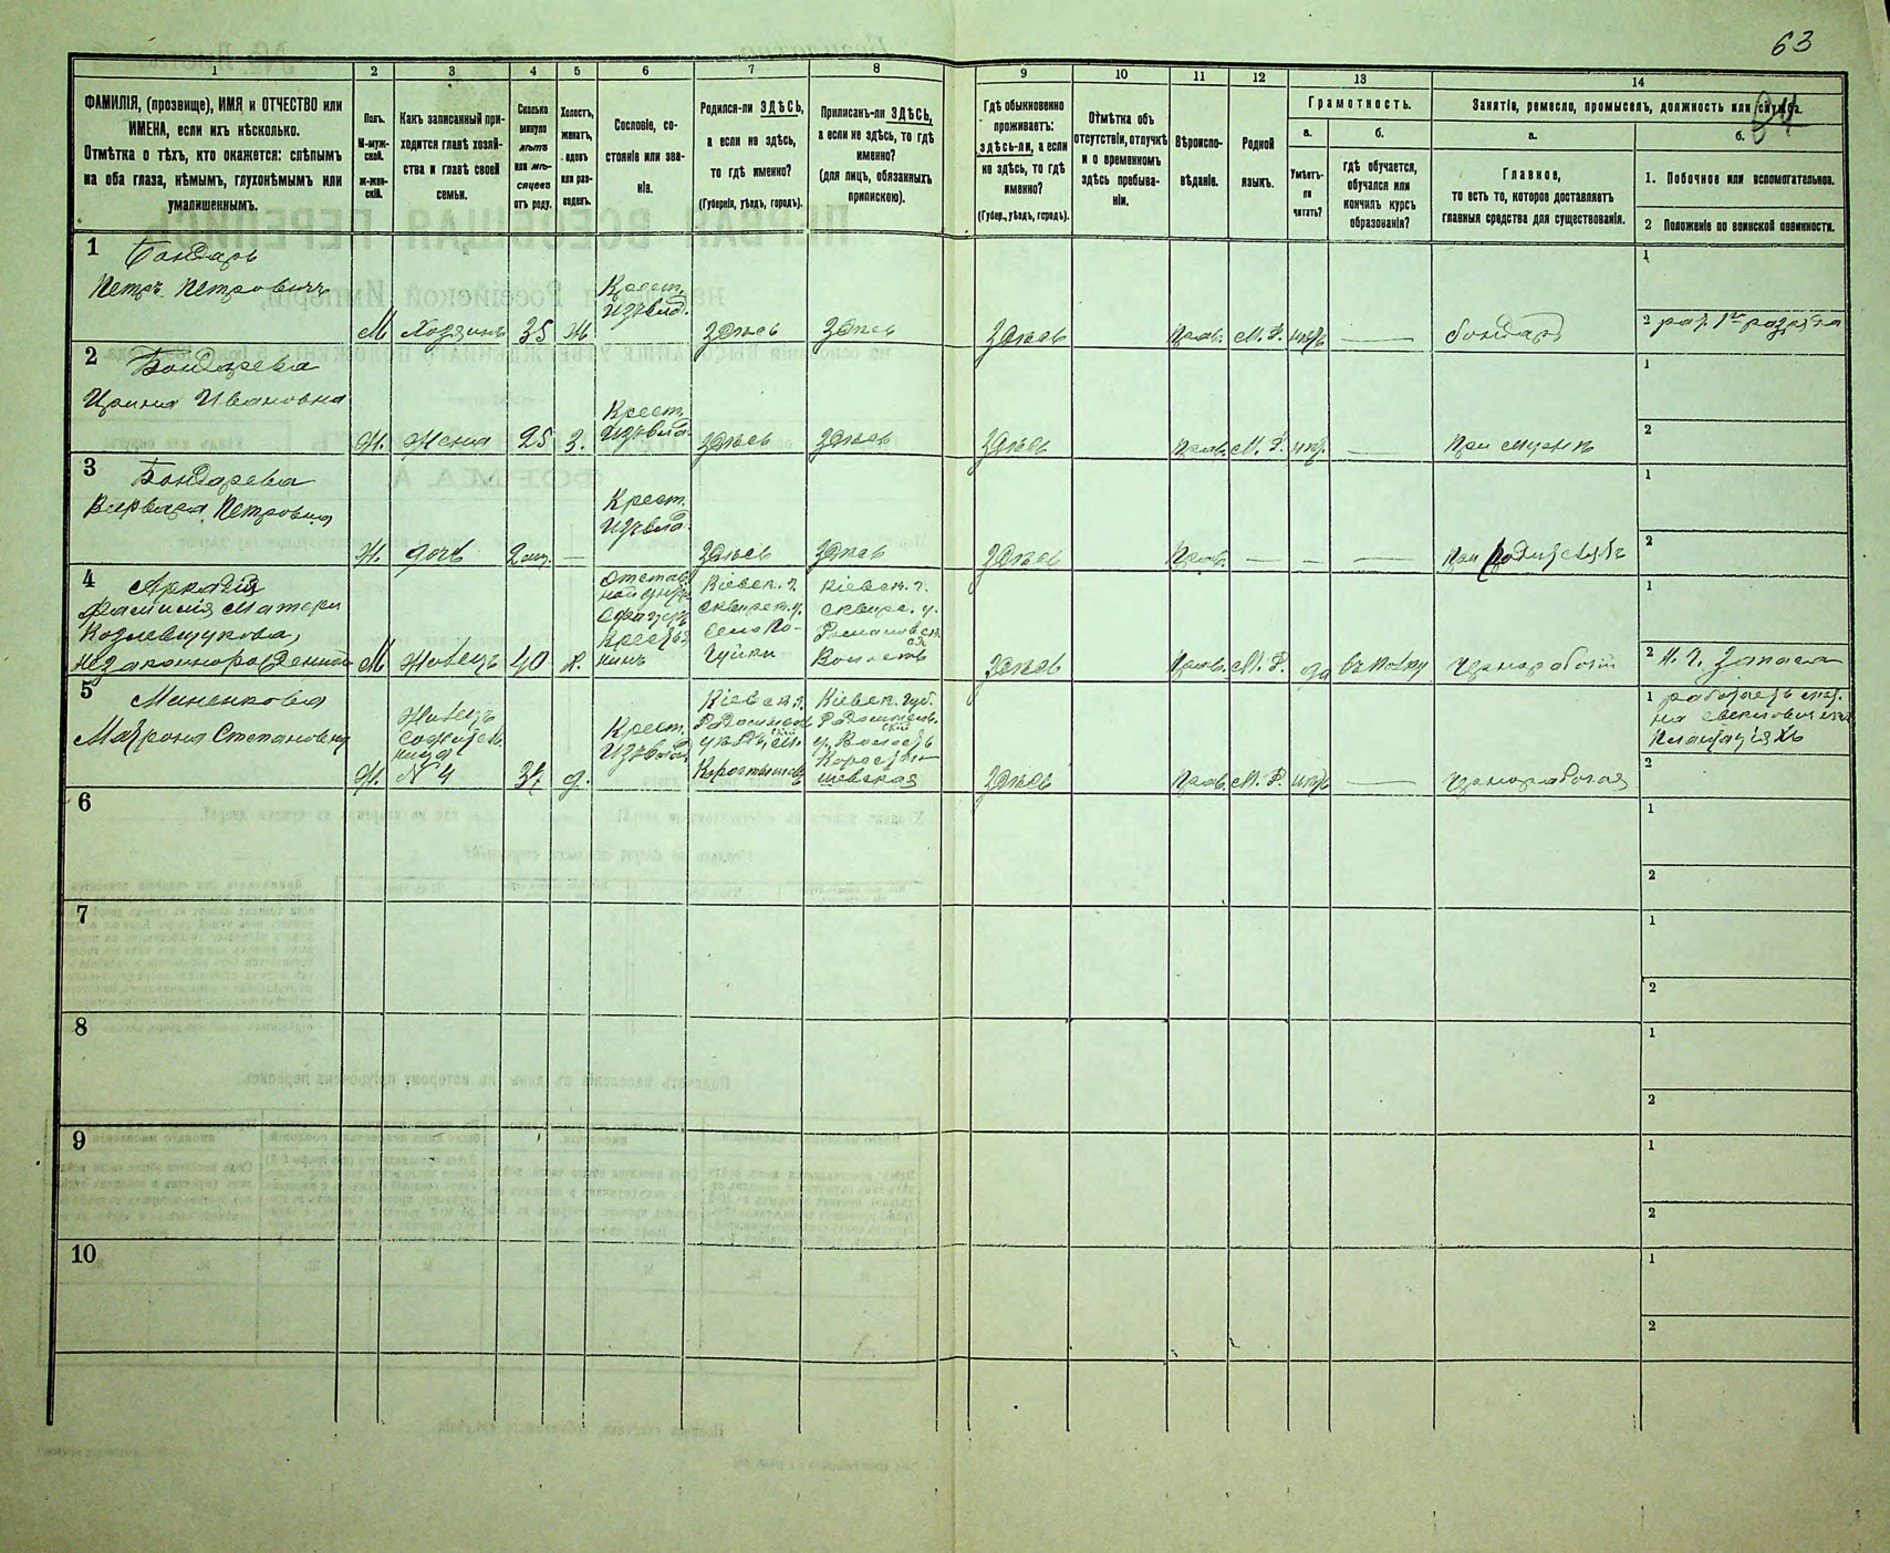 63
64
1
2
3
4
5
6
7
8
9
10
11
12
13
14
ФАМИЛІЯ, (прозвище), ИМЯ и ОТЧЕСТВО или
ИМЕНА, если ихъ нѣсколько.
Отмѣтка о тѣхъ, кто окажется: слѣпымъ
на оба глаза, нѣмымъ, глухонѣмымъ или
умалишеннымъ.
Полъ.
М-муж-
ской.
Ж-жен-
скій.
Какъ записанный при-
ходится главѣ хозяй-
ства и главѣ своей
семьи.
Сколько
минуло
лѣтъ
или мѣ-
сяцевъ
отъ роду.
Холостъ,
женатъ,
вдовъ
или раз-
веденъ.
Сословіе, со-
стояніе или зва-
ніе.
Родился-ли ЗДѢСЬ,
а если не здѣсь,
то гдѣ именно?
(Губернія, уѣздъ, городъ).
Приписанъ-ли ЗДѢСЬ,
а если не здѣсь, то гдѣ
именно?
(для лицъ, обязанныхъ
припискою).
Гдѣ обыкновенно
проживаетъ:
здѣсь-ли, а если
не здѣсь, то гдѣ
именно?
(Губер., уѣздъ, городъ).
Отмѣтка объ
отсутствіи, отлучкѣ
и о временномъ
здѣсь пребыва-
ніи.
Вѣроиспо-
вѣданіе.
Родной
языкъ.
Грамотность.
а.
б.
Умѣетъ-
ли
читать?
гдѣ обучается,
обучался или
кончилъ курсъ
образованія?
Занятіе, ремесло, промыселъ, должность или служба.
а.
б.
Главное,
то есть то, которое доставляетъ
главныя средства для существованія.
1. Побочное или вспомогательное.
2 Положеніе по воинской повинности.
1
Бондарь
Петръ Петровичъ
М
Хозяинъ
35
Ж
Крест.
Изъ влад.
Здѣсь
Здѣсь
Здѣсь
Прав.
М. Р.
нѣтъ
—
бондарь
1
2 рат. 1го разряда
2
Бондарева
Ирина Ивановна
Ж.
Жена
25
З.
Крест.
Изъ влад.
Здѣсь
Здѣсь
Здѣсь
Прав.
М. Р.
нѣт.
—
При мужѣ
1
2
3
Бондарева
Варвара Петровна
Ж.
дочь
2 мѣс.
—
Крест.
Изъ влад.
Здѣсь
Здѣсь
Здѣсь
Прав.
—
—
—
При родителяхъ
1
2
4
Аркадій
фамилія матери
Козлевщукова,
незаконнорожденный
М
Жилецъ
40
х.
Кіевск. г.
сквирск. у.
село По-
Кіевск. г.
сквирс. у.
Романовск
ая
Волость
Здѣсь
Прав.
М. Р.
да
въ полку
Чернорабочій
1
2 Н. Ч. Запаса
5
Миненкова
Матрона Степановна
Ж.
Жилецъ
сожитель
ница
№ 4
34
д.
Крест.
Изъ влад.
Кіевск. г.
Радомысль
скій
уѣздъ, м.
Коростышевъ
Кіевск. губ.
Радомысль.
скій
у. Волость
Коросты-
шевская
Здѣсь
Прав.
М. Р.
нѣтъ
—
Чернорабочая
1 работаетъ
на свекловичныхъ
плантаціяхъ
2
6
1
2
7
1
2
8
1
2
9
1
2
10
1
2